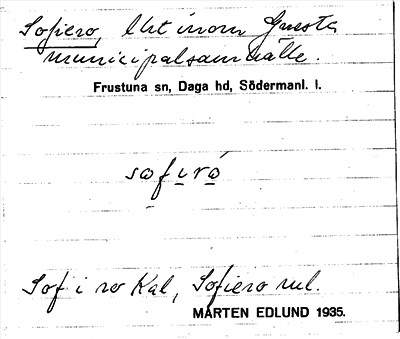 Sofiero, lht inom Gnesta
municipalsamhälle.
Frustuna sn, Daga hd, Södermanl. l.
sofiró
Sof i ro Kal, Sofiero rul.
MÅRTEN EDLUND 1935.